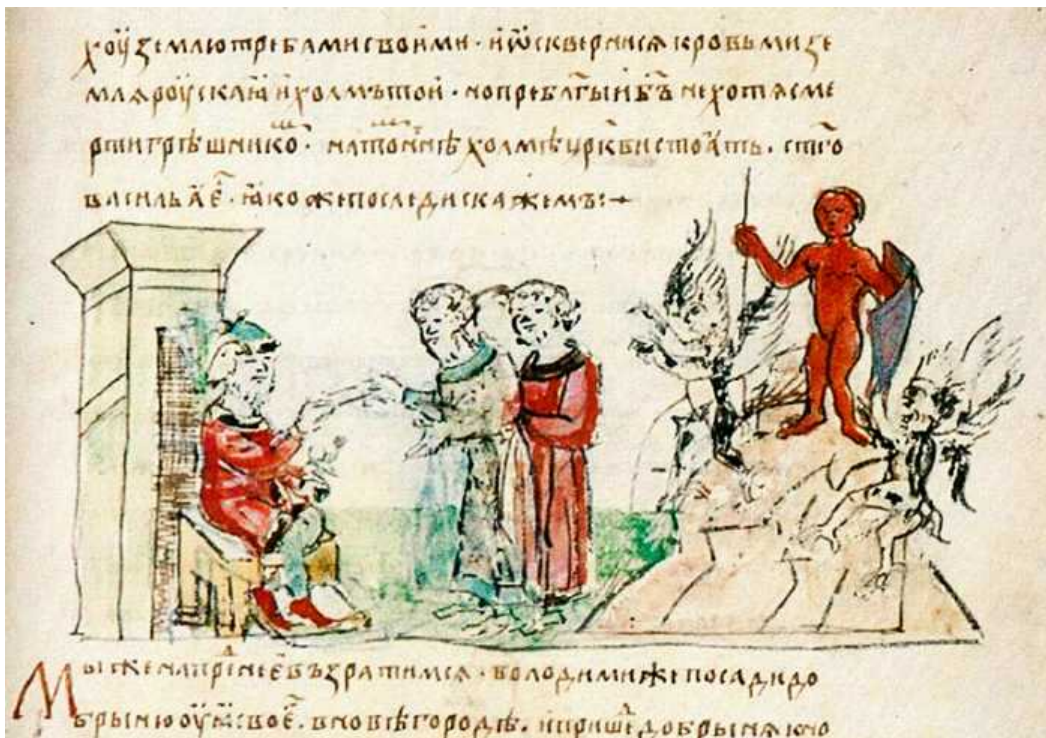 хоу землю требами своими · и ѡсквернися кровьми зе
мля роускаꙗ и холмъ тои · но пребл҃гыи б҃ъ не хотя сме
рти грѣшникоⷨ · холмѣ црк҃ви стоать . ст҃го
василья · ꙗкоже последи скажемъ :~
Мы же на преⷣнеє възратимся · володими же посади до
брыню оуꙗ своеⷢ . в новѣгородѣ . и прише добрыня к но